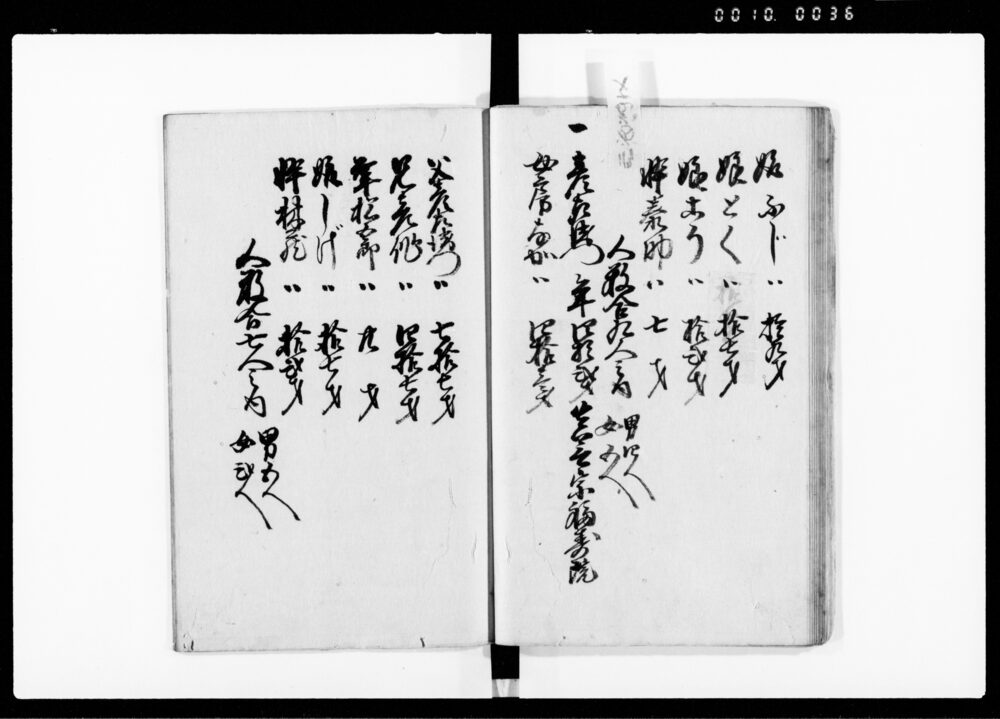 0010.0036
娘ふじ〃拾九才
娘とく〃拾七才
娘こう〃拾弐才
忰泰助〃七才
人数合九人之内 男四人
女五人
一彦右衛門年四拾弐才 真言宗福寿院
女房なか〃四拾三才
父彦左衛門〃七拾七才
兄彦作〃四拾七才
弟松五郎〃
娘しげ〃拾七才
忰林蔵〃拾弐才
人数合七人之内 男五人
女弐人